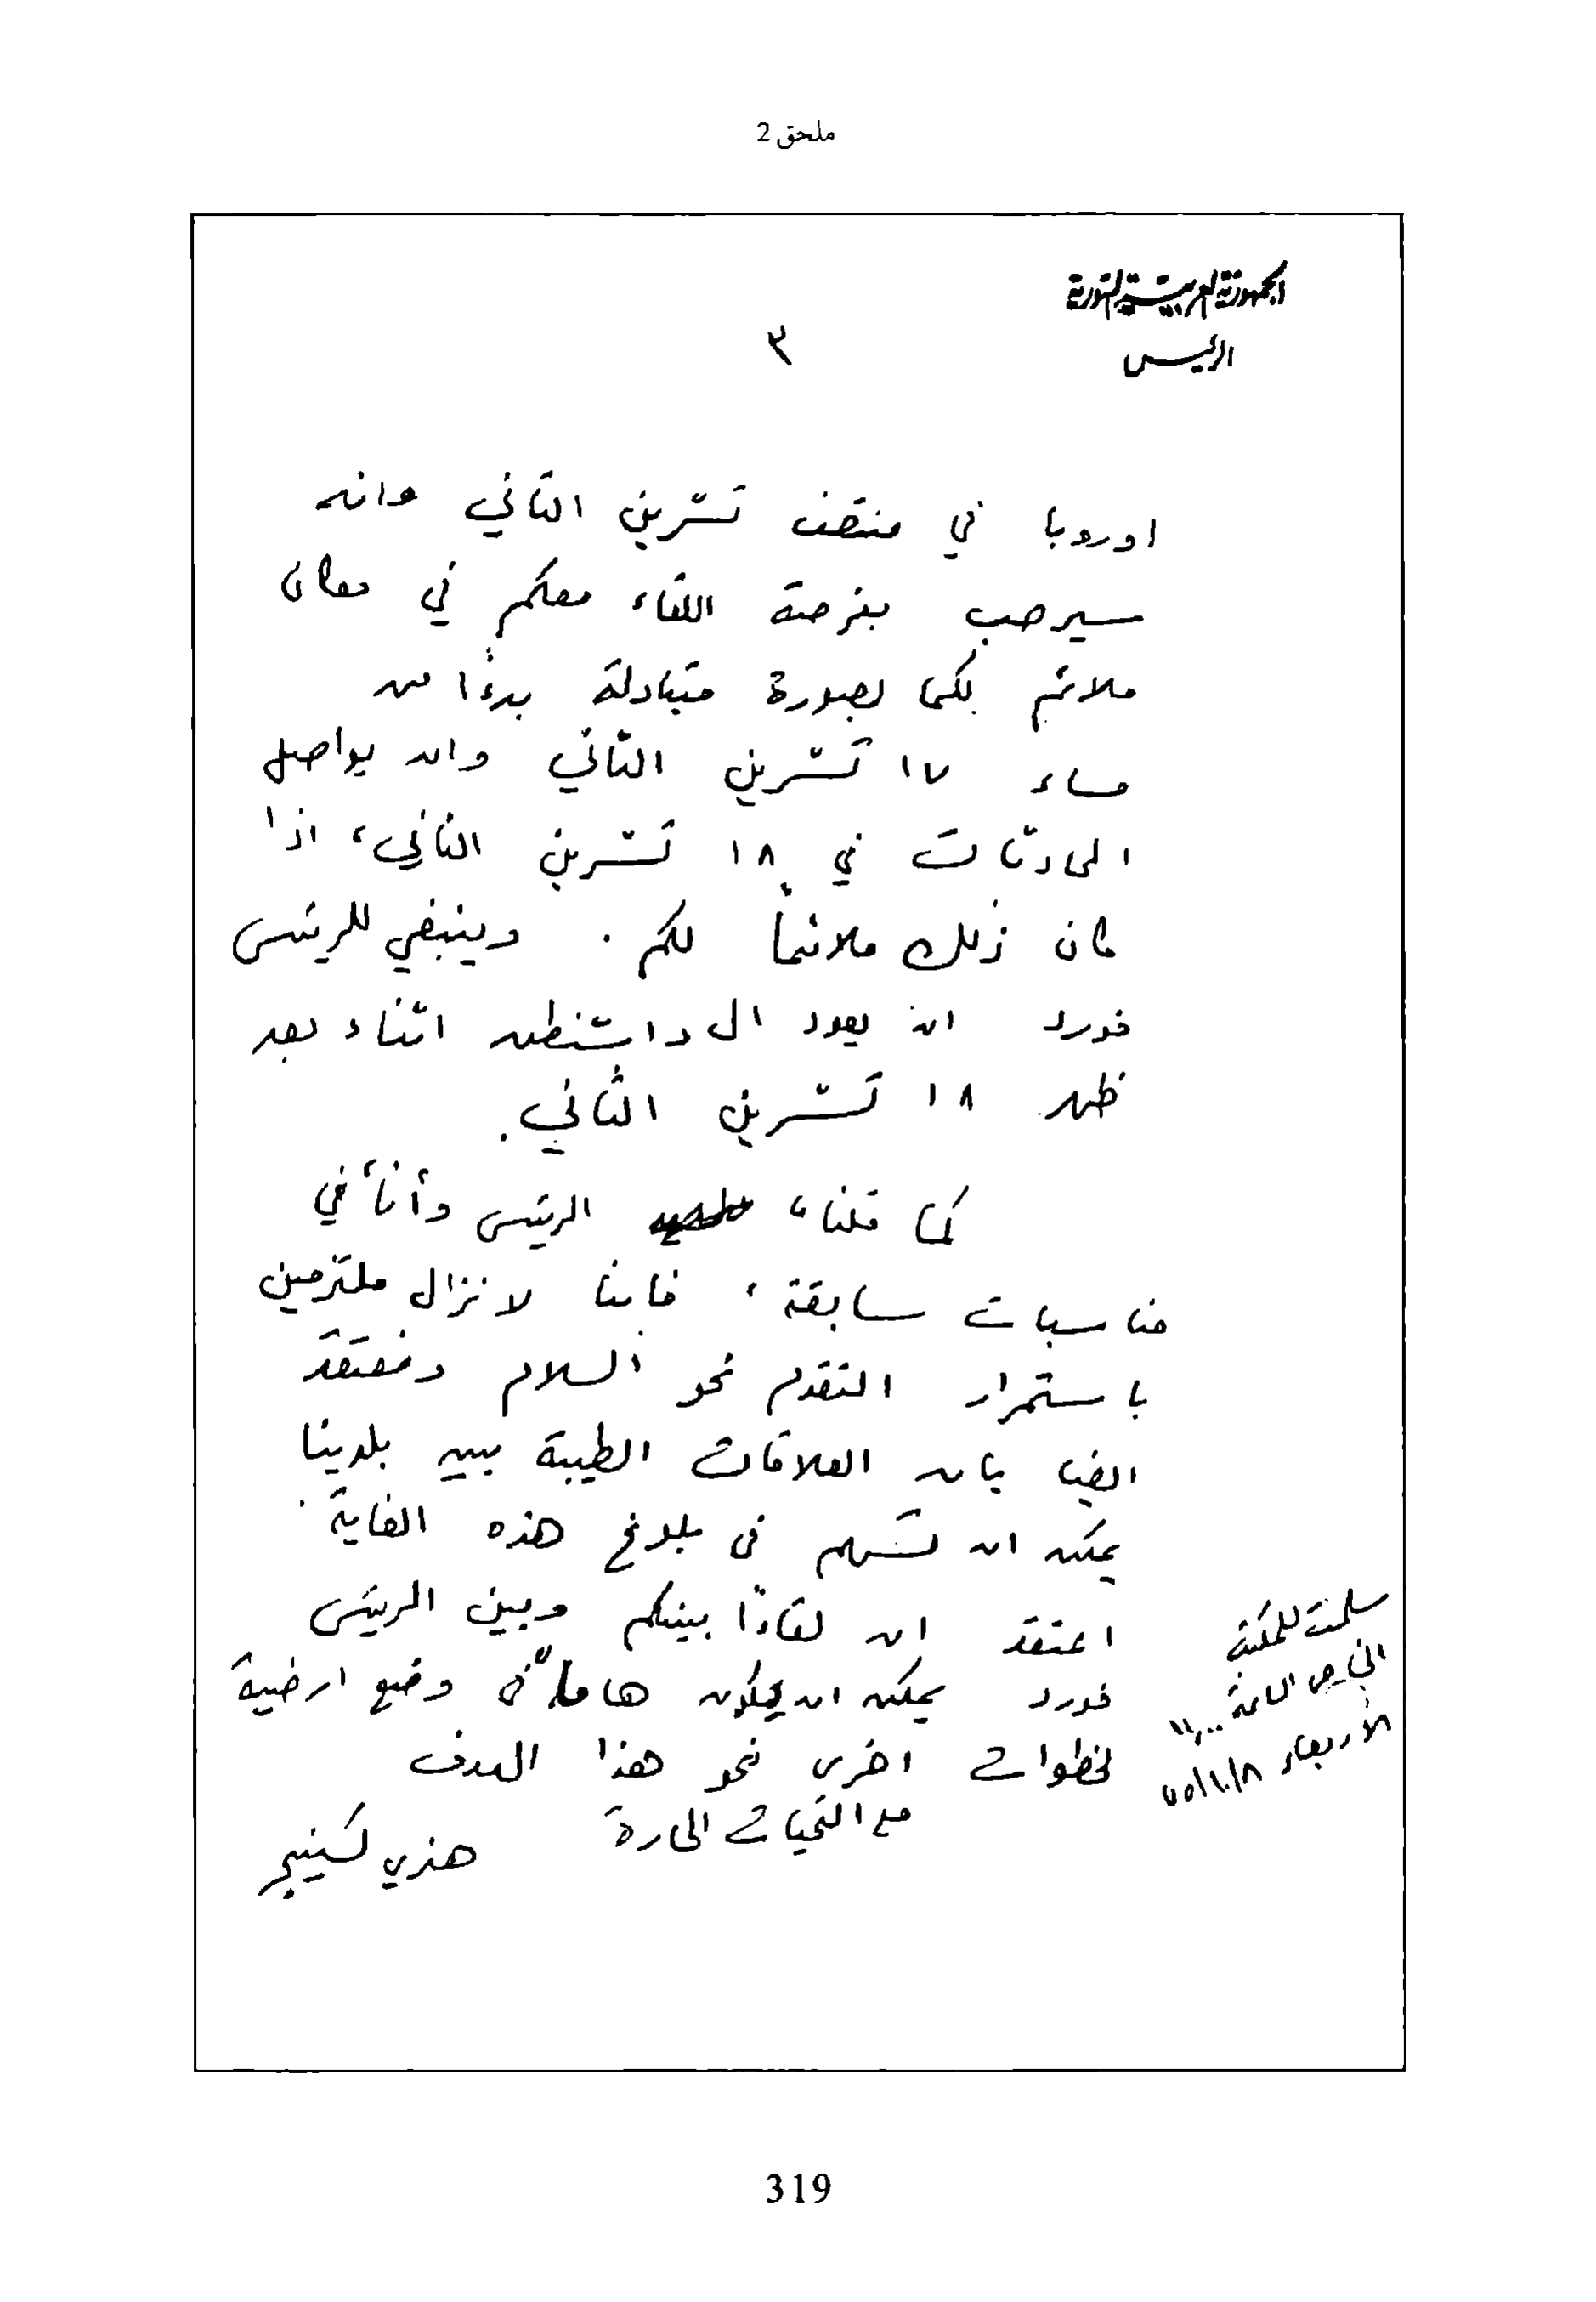 ملحق 2
الجمهورية العربية السورية
الرئيس
٣
اوروبا في منتصف تشرين الثاني وانه
سيرحب بفرصة اللقاء معكم في مكان
ملائم لكما بصورة متبادلة بدءًا من
مساء ١٧ تشرين الثاني وان يواصل
المحادثات في ١٨ تشرين الثاني، اذا
كان ذلك ملائماً لكم. وينبغي للرئيس
فورد ان يعود الى واشنطن اثناء بعد
ظهر ١٨ تشرين الثاني.
كما قلنا، الرئيس وأنا في
مناسبات سابقة، فاننا لا نزال ملتزمين
باستمرار التقدم نحو السلام ونعتقد
ايضا بان العلاقات الطيبة بين بلدينا
يمكن ان تسهم في بلوغ هذه الغاية.
اعتقد ان لقاءًا بينكم وبين الرئيس
فورد يمكن ان يكون هاماً في وضع ارضية
لخطوات اخرى نحو هذا الهدف
مع التحيات الحارة
هنري كسينجر
سلمت للمكتب
الخاص الساعة ١١,٠٠
الأربعاء ٧٥/١٠/٨
319